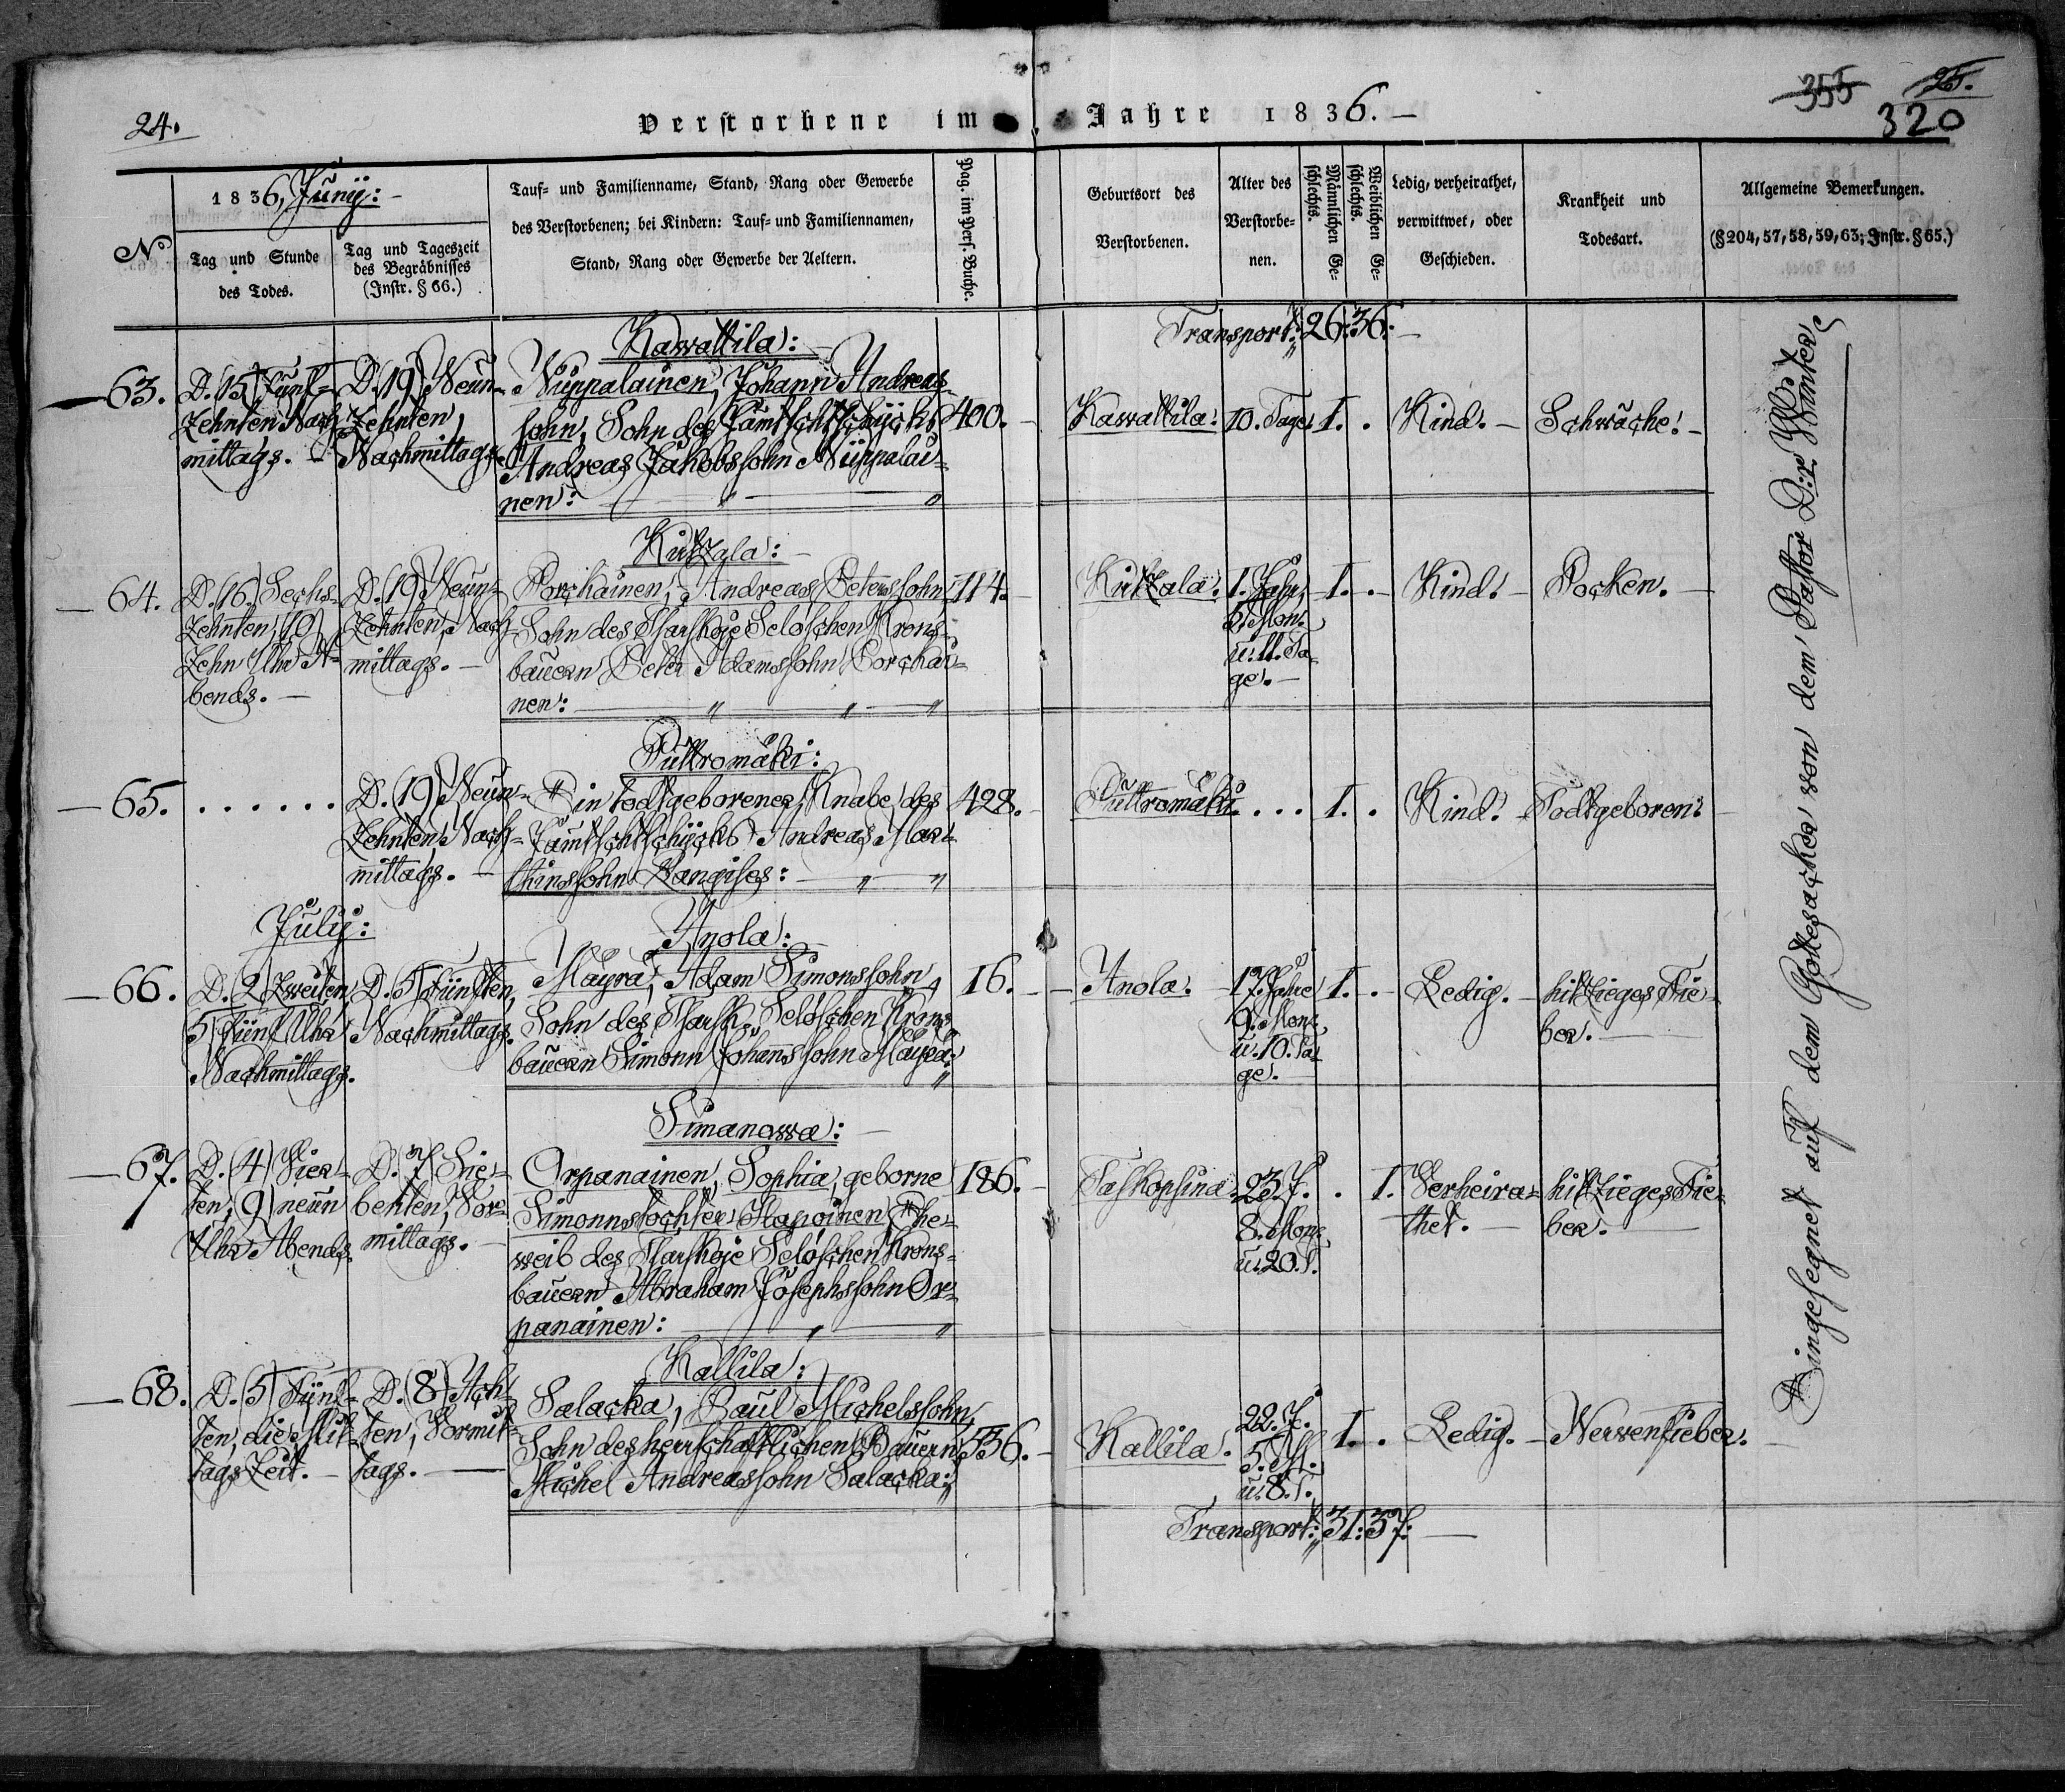 24.
Verstorbene im Jahre 1836.
355 25.
320
No
1836, Junij:
Tag und Stunde
des Todes.
Tag und Tageszeit
des Begräbnisses
(Instr. § 66.)
Tauf- und Familienname, Stand, Rang oder Gewerbe
des Verstorbenen; bei Kindern: Tauf- und Familiennamen,
Stand, Rang oder Gewerbe der Aeltern.
Pag. im Pers. Buche.
Geburtsort des
Verstorbenen.
Alter des
Verstorbe-
nen.
Männlichen Ge-
schlechts.
Weiblichen Ge-
schlechts.
Ledig, verheirathet,
verwittwet, oder
Geschieden.
Krankheit und
Todesart.
Allgemeine Bemerkungen.
(§ 204, 57, 58, 59, 63; Instr. § 65.)
Transport: 26. 36.
Kawattila:
63.
D. 15) Funf-
Zehnten Nach
mittags.
D. 19) Neun-
Zehnten,
Nachmittags.
Nuppalainen, Johann Andreas
sohn, Sohn des Jämtschtschijcks
Andreas Jakobssohn Nuppalai-
nen:
400.
Kawattila.
10. Tage.
1.
Kind.
Schwäche.
Kukkala:
64.
D. 16. Sechs-
Zehnten, 10)
Zehn Uhr A-
bends.
D. 19) Neun-
Zehnten, Nach
mittags.
Porchainen, Andreas Peterssohn
Sohn des Zarskoje Seloschen Krons-
bauern Peter Adamssohn Porchai-
nen:
114.
Kukkala.
1. Jahr,
Mon.
u. 11. Ta-
ge.
1.
Kind.
Pocken.
Puttromäki:
65.
D. (19) Neun-
Zehnten, Nach-
mittags.
Ein todtgeborener Knabe des
Jämtschtschijcks Andreas Mar-
thinssohn Kangises:
428.
Puttromäki.
1.
Kind.
Todtgeboren.
July:
Anola:
66.
D. 2) Zweiten
5) Fünf Uhr
Nachmittags.
D. 5) Fünften,
Nachmittags.
Mayra, Adam Simonssohn,
Sohn des Zarsk. Seloschen Krons
bauern Simonn Johannssohn Mayra:
16.
Anola.
17. Jahre
9. Mon.
u. 10. Ta-
ge.
1.
Ledig.
hitzieges Fie-
ber.
Simanowa:
67.
D. (4) Vier-
ten, 9) neun
Uhr Abends.
D. 7) Sie-
benten, Vor-
mittags.
Orpanainen, Sophia, geborne
Simonnstochter Hapoinen, Ehe-
weib des Zarskoje Seloschen Krons-
bauern Abraham Josephssohn Or-
panainen:
186.
Taskopsina.
23. J.
8. Mon.
u. 20. T.
1.
Verheira-
thet.
hitzieges Fie-
ber.
Kallila:
68.
D. (5) Fünf-
ten, die Mit-
tags Zeit.
D. (8) Ach-
ten, Vormit-
tags.
Salacka, Paul Michelssohn,
Sohn des herrschaftlichen Bauern
Michel Andreassohn Salacka:
536.
Kallila.
22. J.
5. M.
u. 8. T.
1.
Ledig.
Nervenfieber.
Transport: 31: 37:
Eingesegnet auf dem Gottesacker von dem Pastor